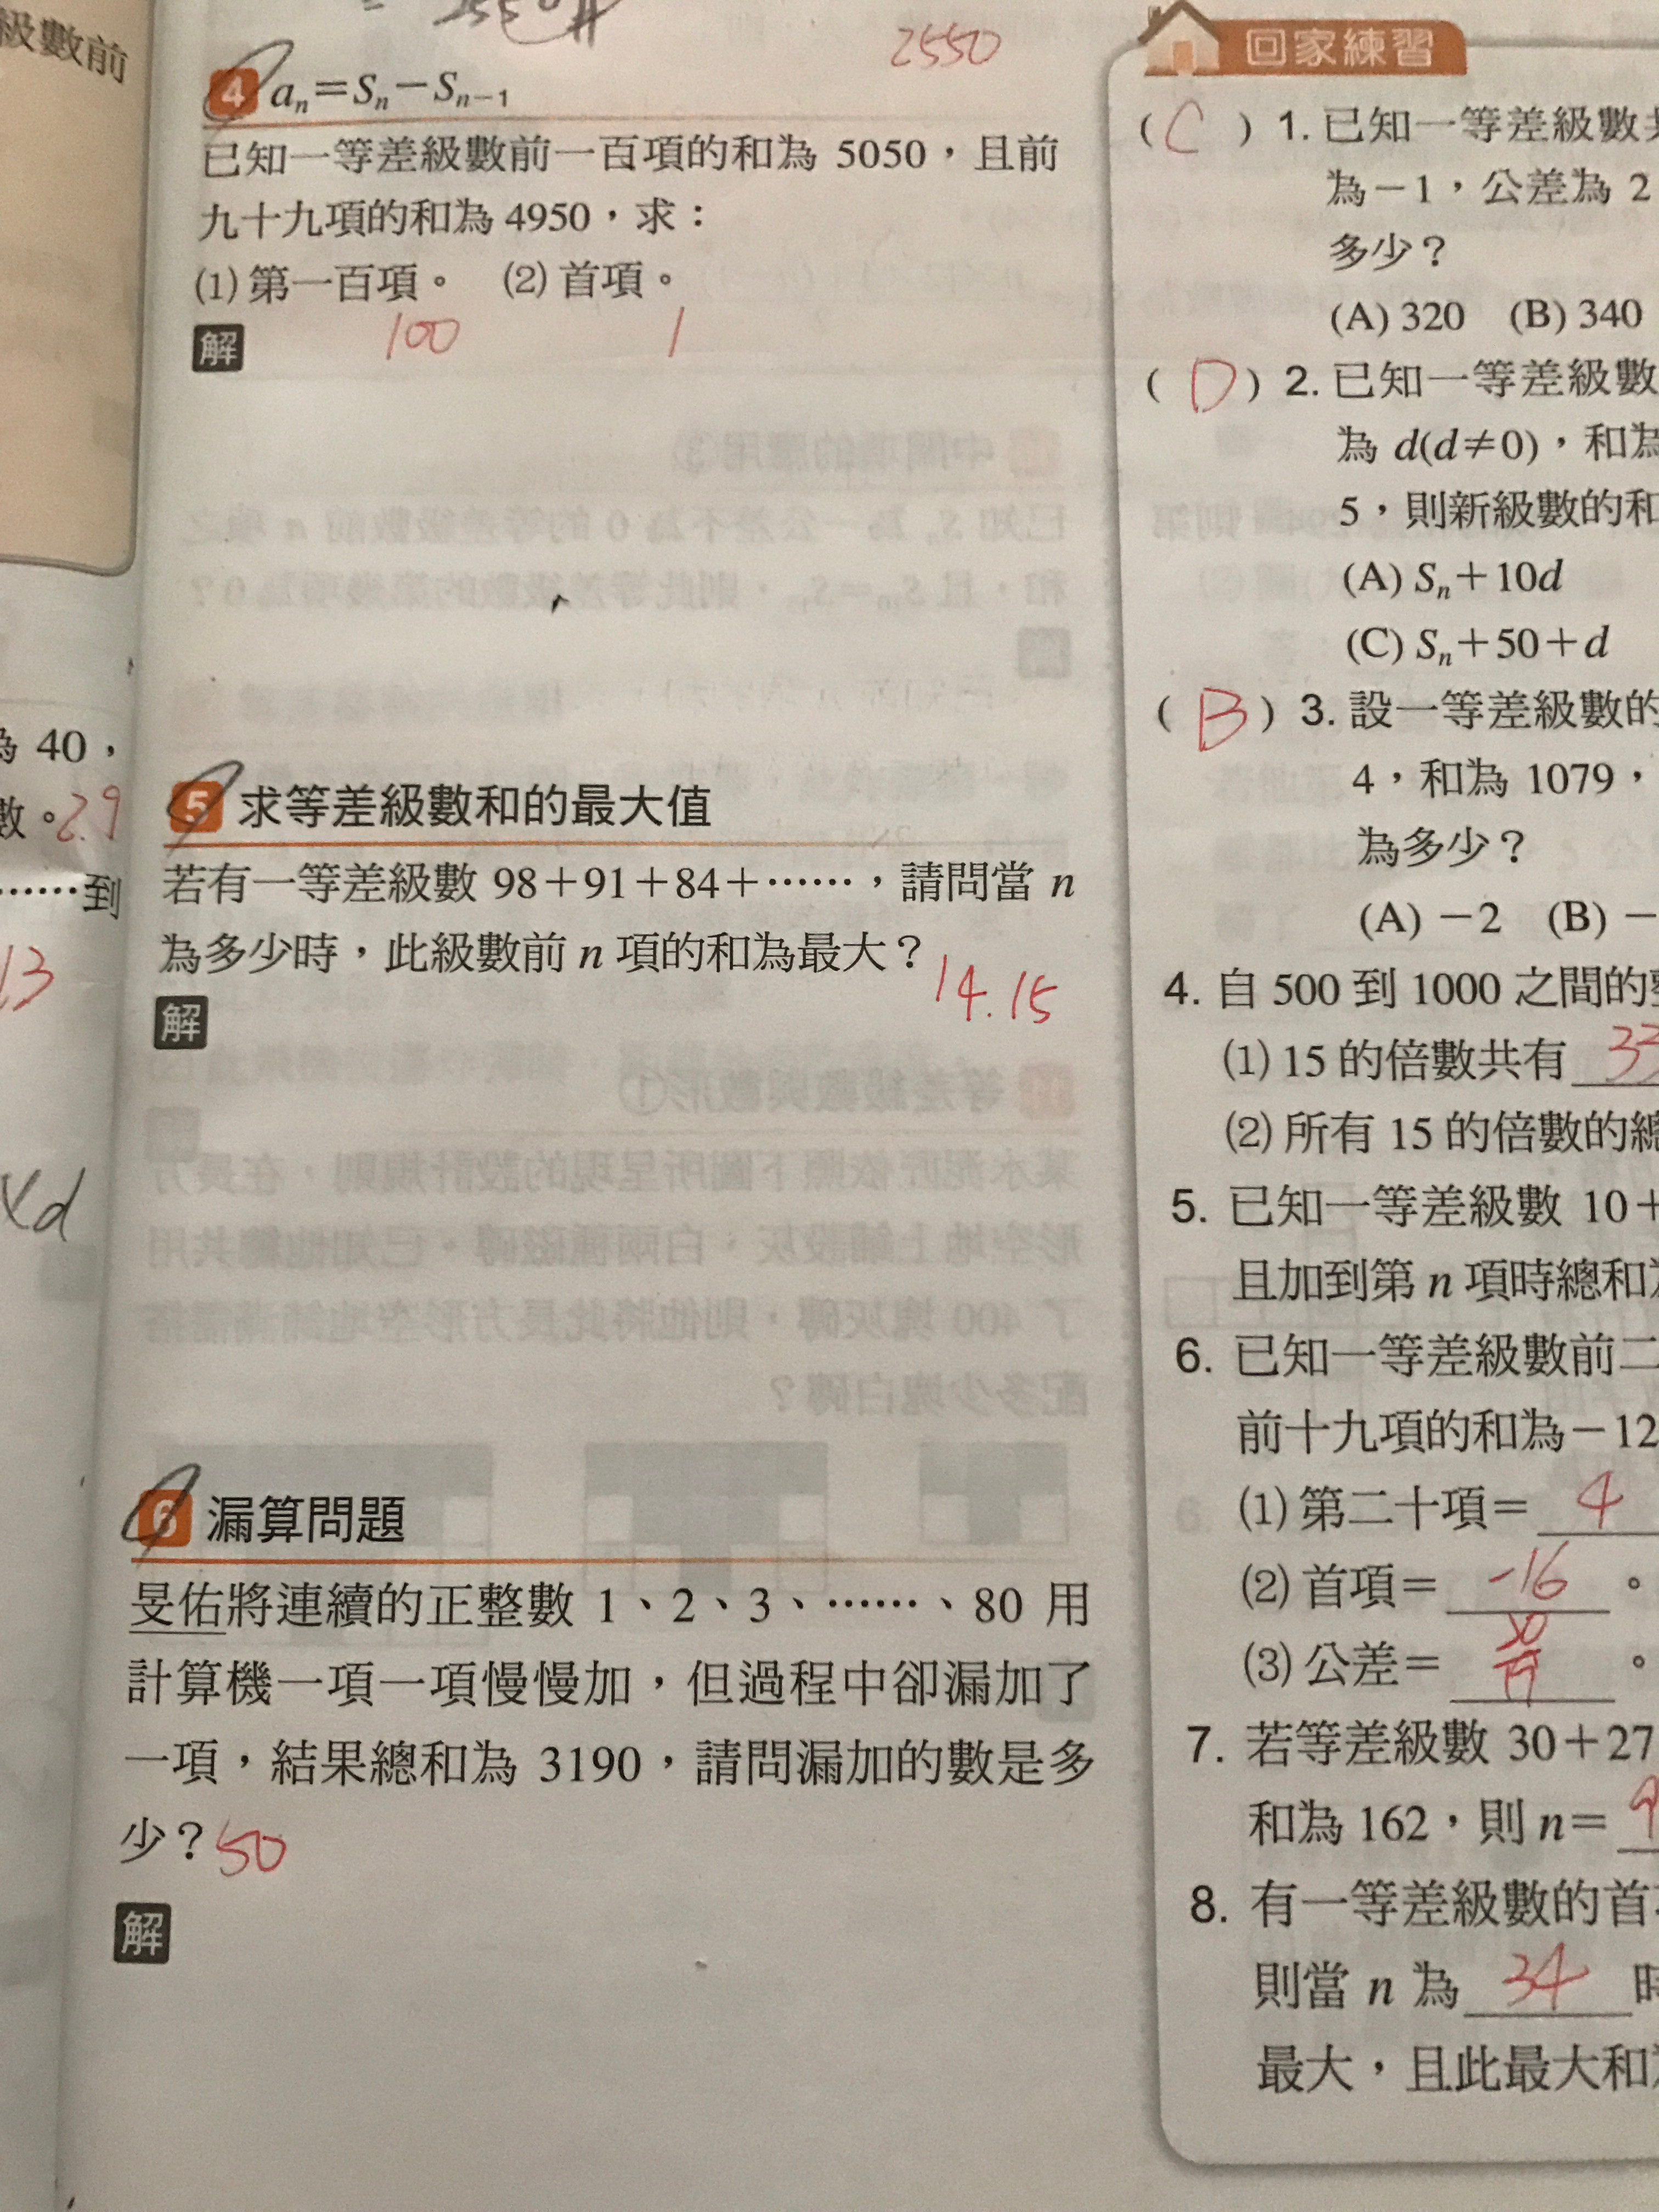 級數前
為 40，
數。2.9
……到
13
xd
2550
4 aₙ＝Sₙ－Sₙ₋₁
已知一等差級數前一百項的和為 5050，且前
九十九項的和為 4950，求：
(1) 第一百項。 (2) 首項。
100 1
解
5 求等差級數和的最大值
若有一等差級數 98＋91＋84＋……，請問當 n
為多少時，此級數前 n 項的和為最大？
14.15
解
6 漏算問題
旻佑將連續的正整數 1、2、3、……、80 用
計算機一項一項慢慢加，但過程中卻漏加了
一項，結果總和為 3190，請問漏加的數是多
少？50
解
回家練習
( C ) 1. 已知一等差級數
為－1，公差為 2
多少？
(A) 320 (B) 340
( D ) 2. 已知一等差級數
為 d(d≠0)，和為
5，則新級數的和
(A) Sₙ＋10d
(C) Sₙ＋50＋d
( B ) 3. 設一等差級數的
4，和為 1079，
為多少？
(A) －2 (B) －
4. 自 500 到 1000 之間的
(1) 15 的倍數共有 33
(2) 所有 15 的倍數的總
5. 已知一等差級數 10＋
且加到第 n 項時總和為
6. 已知一等差級數前二
前十九項的和為－12
(1) 第二十項＝ 4
(2) 首項＝ -16 。
(3) 公差＝ 20/19 。
7. 若等差級數 30＋27
和為 162，則 n＝ 9
8. 有一等差級數的首
則當 n 為 34 時
最大，且此最大和